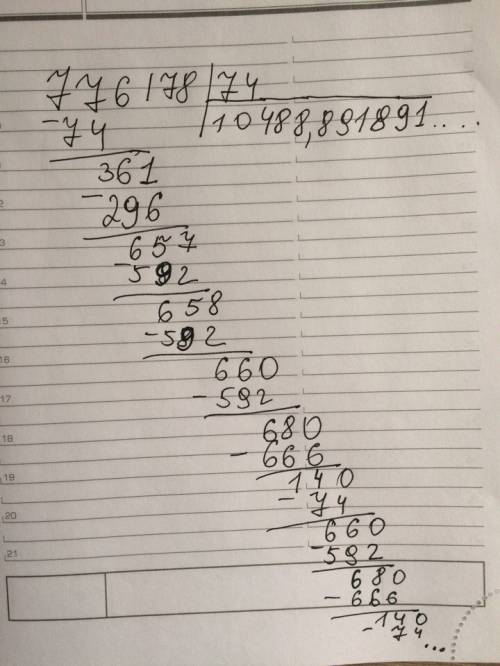 776178 74
-74 10488,891891....
361
-296
657
-592
658
-592
660
-592
680
-666
140
-74
660
-592
680
-666
140
-74...
13
14
15
16
17
18
19
20
21